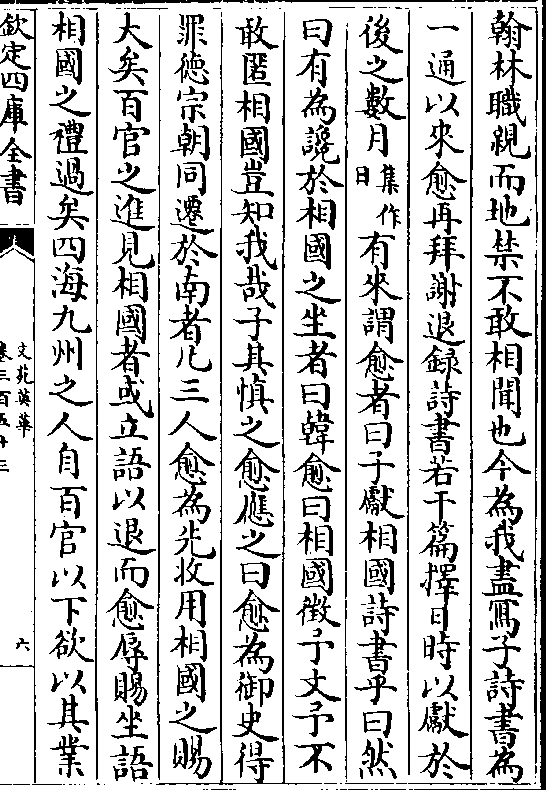 翰林職親而地禁不敢相聞也今為我盡寫子詩書為
一通以來愈再拜謝退録詩書若干篇擇日時以獻於
後之數月集作日有來謂愈者曰子獻相國詩書乎曰然
曰有為讒於相國之坐者曰韓愈曰相國徵予文予不
敢匿相國豈知我哉子其慎之愈應之曰愈為御史得
罪徳宗朝同遷於南者凡三人愈為先收用相國之賜
大矣百官之進見相國者或立語以退而愈辱賜坐語
相國之禮過矣四海九州之人自百官以下欲以其業
欽定四庫全書
文苑英華
卷三百五十三
六